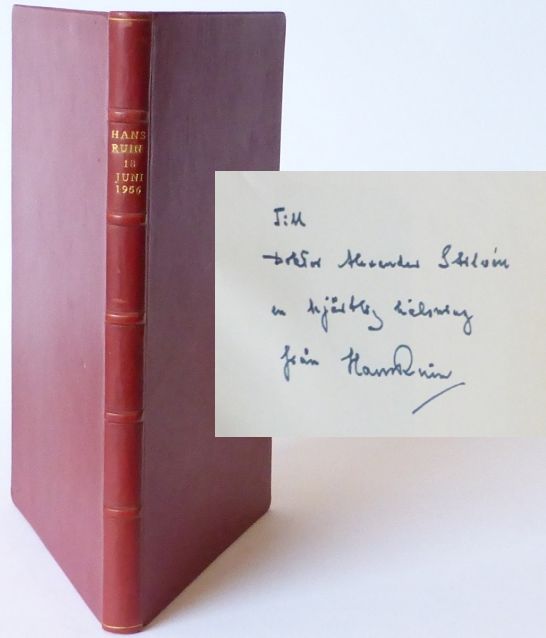 HANS
RUIN
18
JUNI
1956
Till
Doktor Alexander
en hjärtlig hälsning
från Hans Ruin